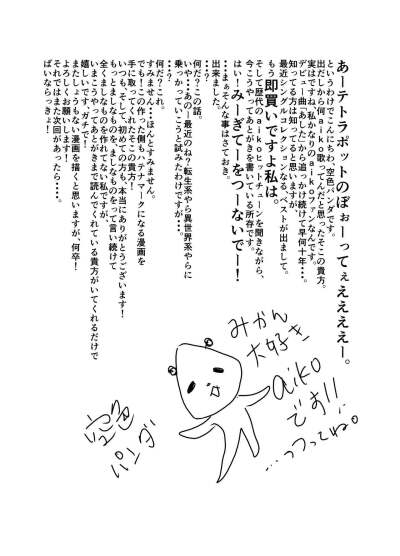 あーテトラポットのぼぉーってぇえええええー。
というわけでこんにちわ、空色パンダです。
出だしから何aiko歌ってんだと思ったそこの貴方、
実はですね、私かなりのaikoファンなんです。
デビュー曲「あした」から追っかけ続けて早何十年・・・。
知ってる方は知ってると思いますが、
最近シングルコレクションなる、ベストが出まして。
もう即買いですよ私は。
そして歴代のaikoヒットチューンを聞きながら、
今こうやってあとがきを書いている所存です。
はい！みーぎてーをつーないでー！
・・・まぁそんな事はさておき、
出来ました。
・・・？
何だ？この話。
いや・・・あのー最近のね？転生系やら異世界系やらに
乗っかっていこうと試みたわけですが、
・・・？
何だ？これ。
すみません・・・ほんとすみません。
でも！この作った側もハテナマークになる漫画を
手に取ってくれたそこの貴方！
いつも、そして、初めての方も、本当にありがとうございます！
もっとましなものを、ましなものをって言い続けて
全くましなものを作れてない私ですが、
いまこうやってあとがきまで読んでくれている貴方がいてくれるだけで
嬉しいです、ガチで！
またしょうもない漫画を描くと思いますが、何卒！
よろしくお願いします！
それではまた次回があったら・・・。
ばいならっきょ！
みかん
大好き
aikoです!!
…フフってね。
空色
パンダ